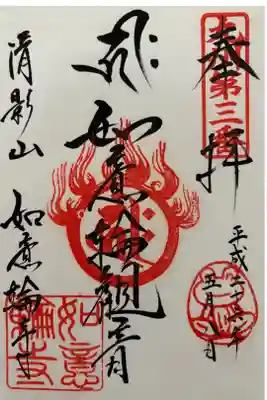 奉拝
第三番
平成二十六年
五月 日
如意輪観音
清影山
如意輪寺
如意輪寺